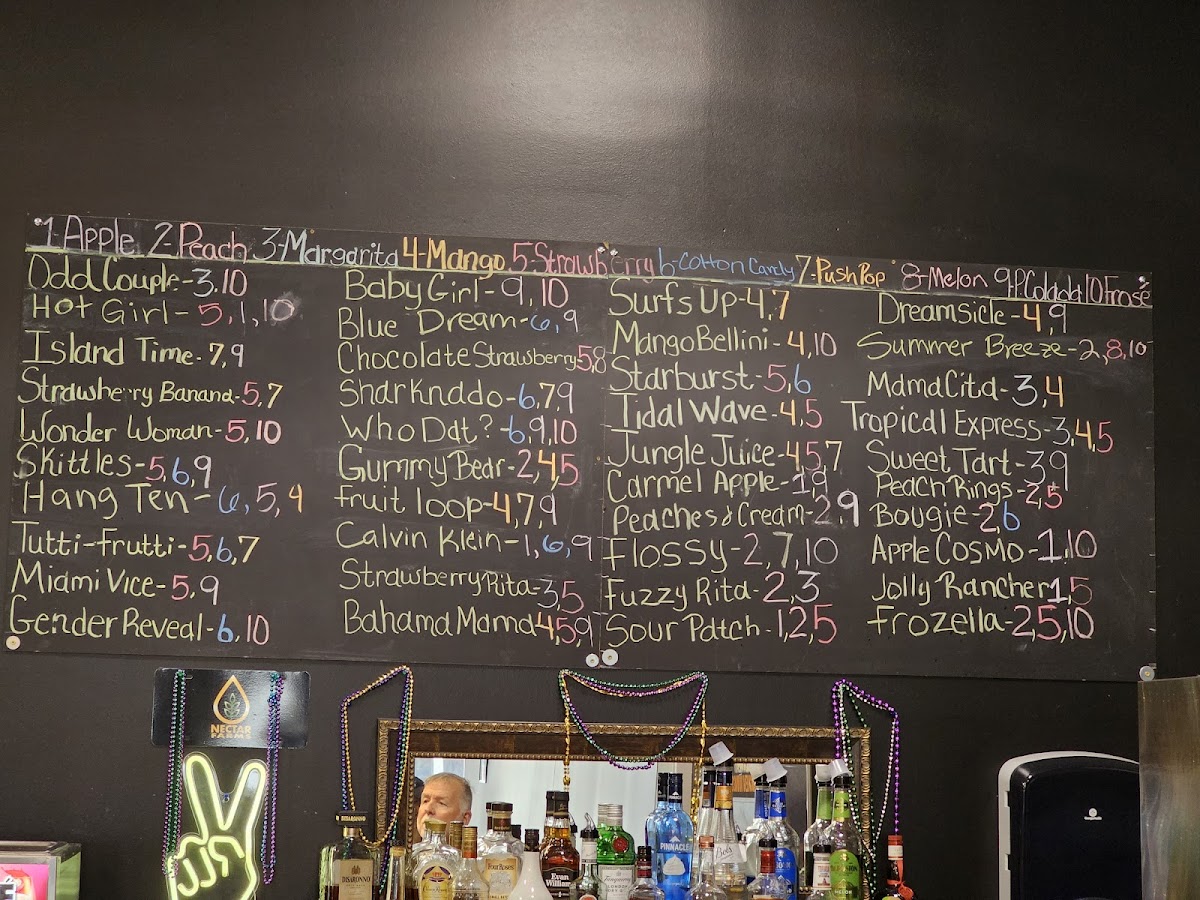 1-Apple 2-Peach 3-Margarita 4-Mango 5-Strawberry 6-Cotton Candy 7-PushPop 8-Melon 9-P.Colada 10 Frosé
Odd Couple-3,10
Hot Girl-5,1,10
Island Time-7,9
Strawberry Banana-5,7
Wonder Woman-5,10
Skittles-5,6,9
Hang Ten-6,5,4
Tutti-frutti-5,6,7
Miami Vice-5,9
Gender Reveal-6,10
Baby Girl-9,10
Blue Dream-6,9
Chocolate Strawberry 5,8
Sharknado-6,7,9
Who Dat?-6,9,10
Gummy Bear-2,4,5
fruit loop-4,7,9
Calvin Klein-1,6,9
Strawberry Rita-3,5
Bahama Mama 4,5,9
Surfs Up-4,7
Mango Bellini-4,10
Starburst-5,6
Tidal Wave-4,5
Jungle Juice-4,5,7
Carmel Apple-1,9
Peaches & Cream-2,9
Flossy-2,7,10
Fuzzy Rita-2,3
Sour Patch-1,2,5
Dreamsicle-4,9
Summer Breeze-2,8,10
MamaCita-3,4
Tropical Express-3,4,5
Sweet Tart-3,9
Peach Rings-2,5
Bougie-2,6
Apple Cosmo-1,10
Jolly Rancher 1,5
frozella-2,5,10
NECTAR
FARMS
DISARONNO
Evan
Williams
PINNACLE